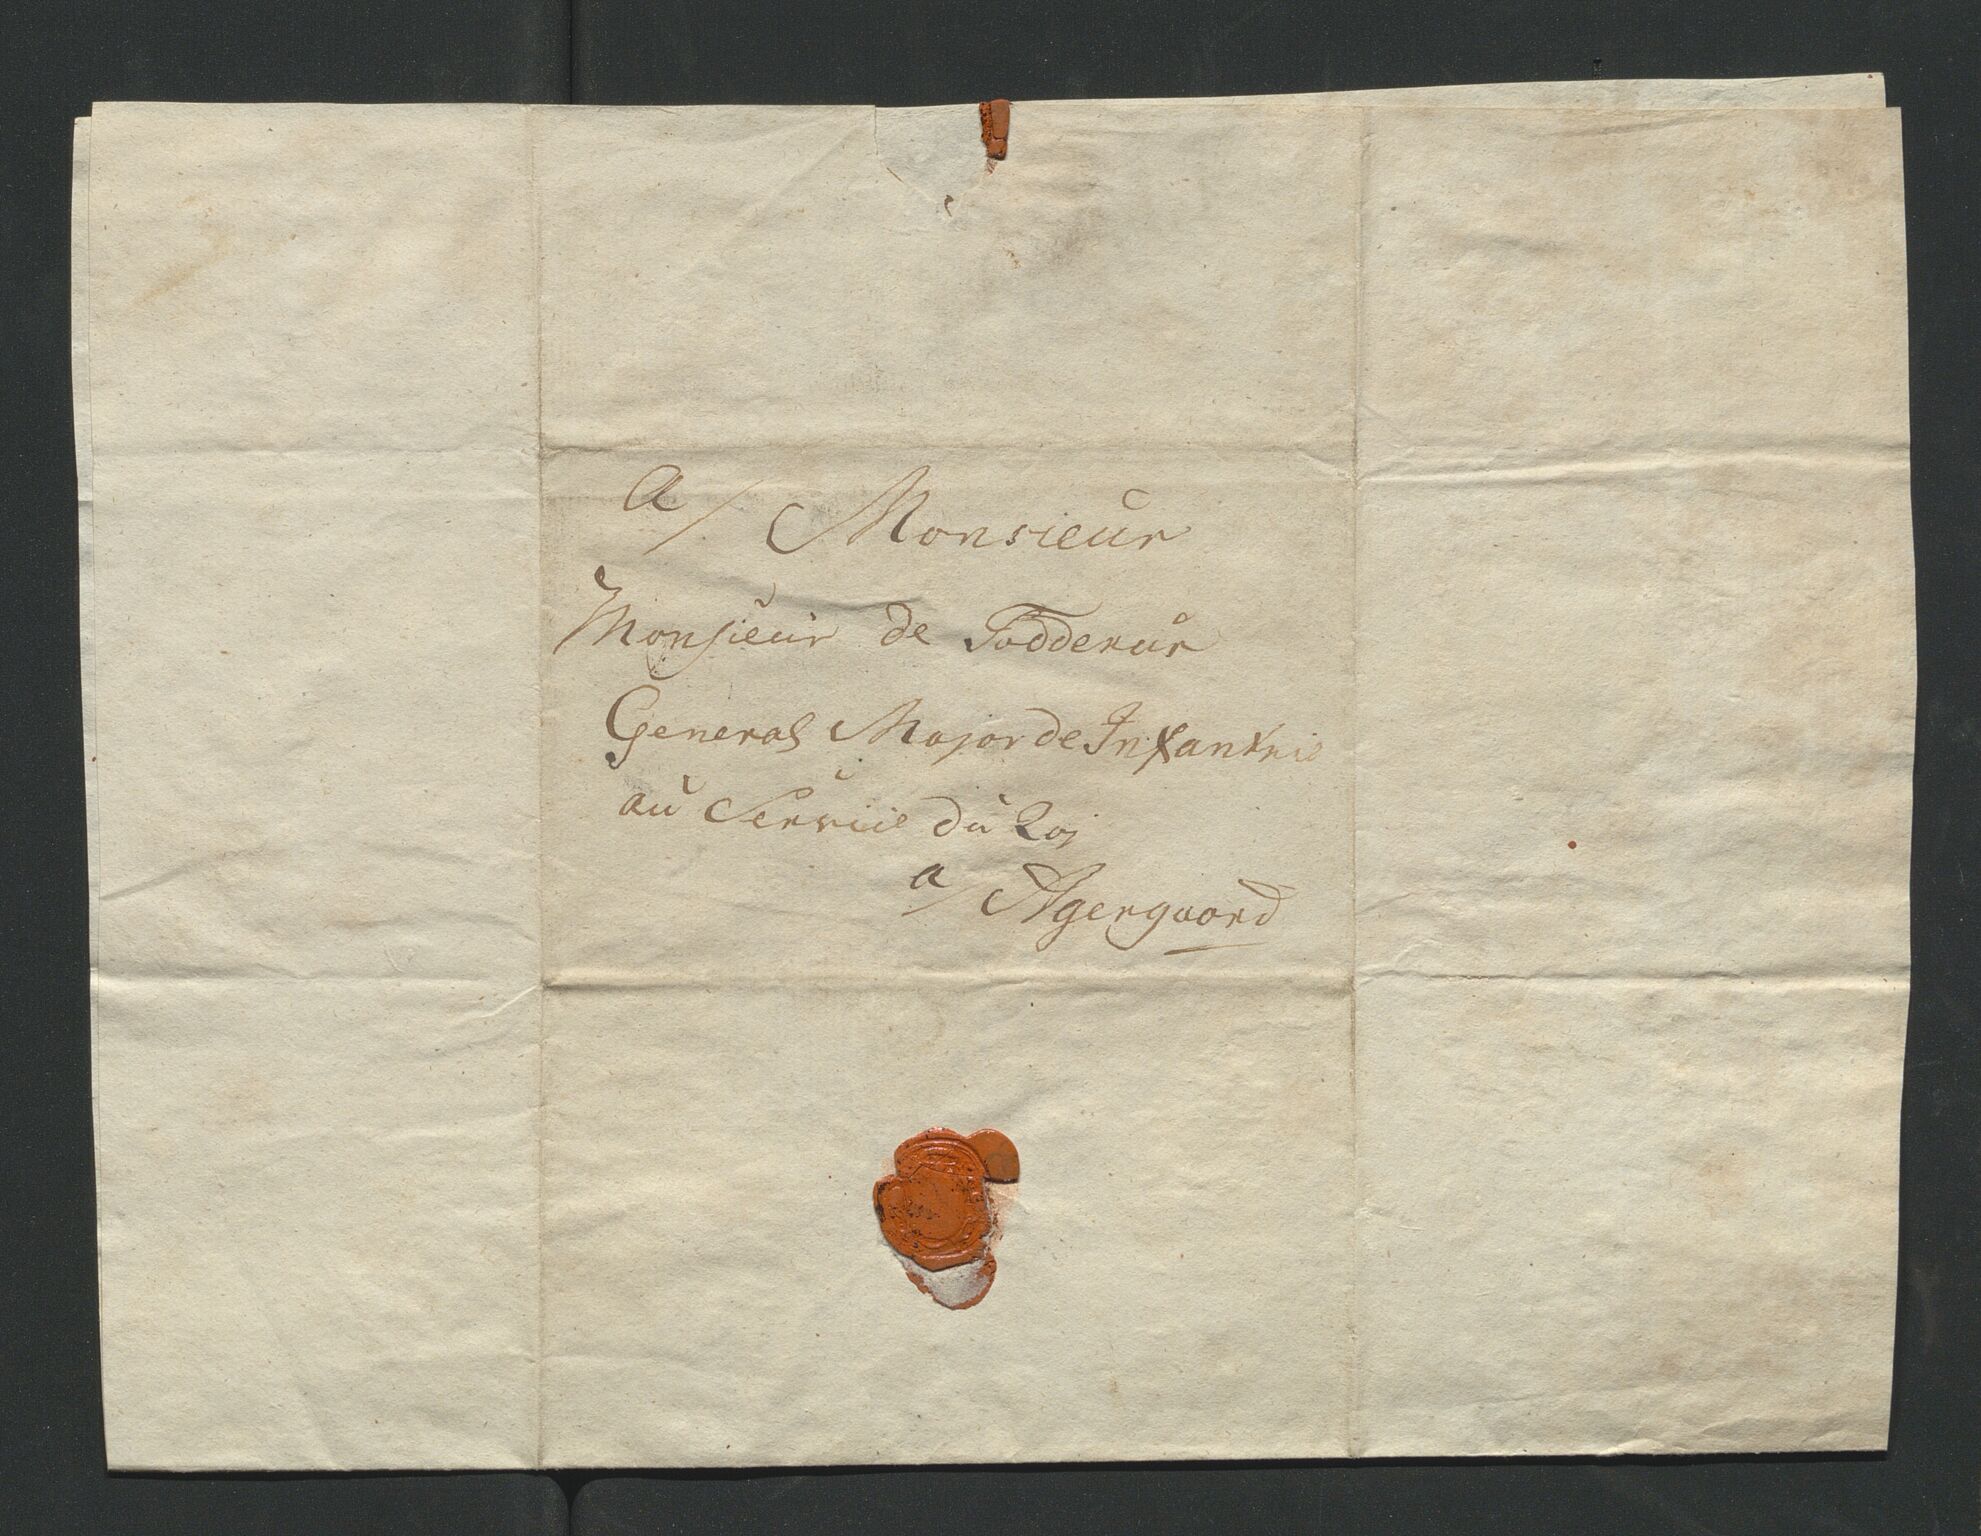 a / Monsieur
Monsieur de Todderur
General Major de Infanterie
au Service du Roj
a / Agergaard